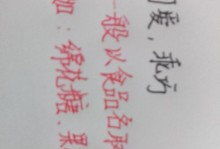 爱，乖巧
一般以食品名
如：绵花糖、果